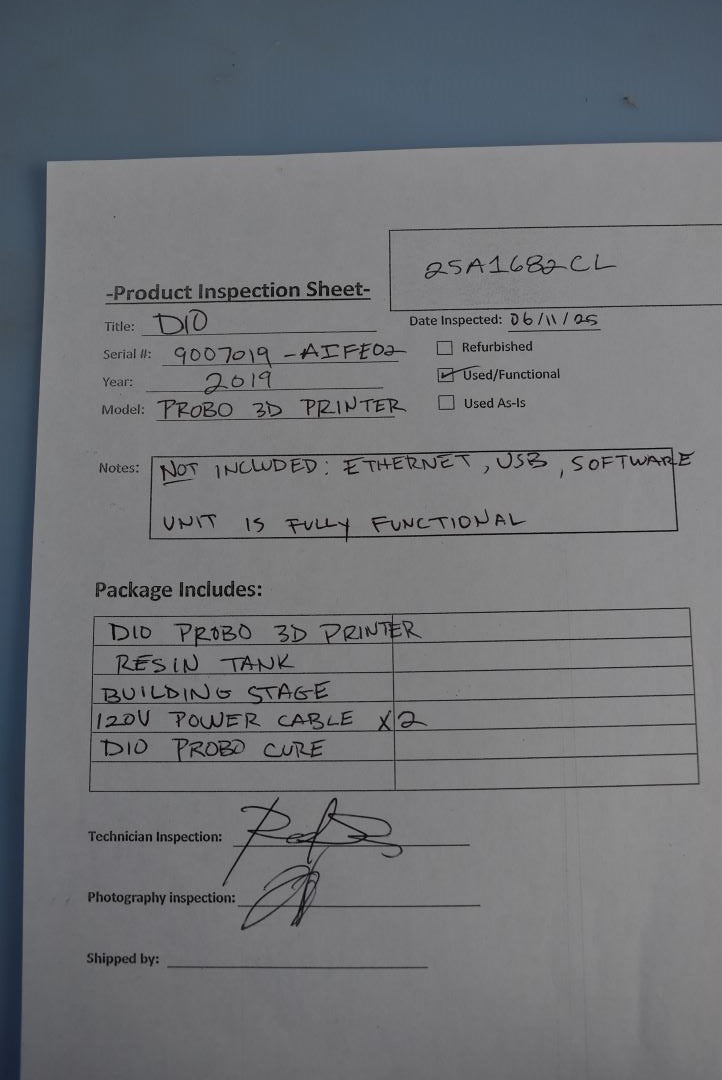 25A1682CL
-Product Inspection Sheet-
Title: DIO
Date Inspected: 06/11/25
Serial #: 9007019-AIFE02
Refurbished
Year: 2019
Used/Functional
Model: PROBO 3D PRINTER
Used As-Is
Notes: NOT INCLUDED: ETHERNET, USB, SOFTWARE
UNIT IS FULLY FUNCTIONAL
Package Includes:
DIO PROBO 3D PRINTER
RESIN TANK
BUILDING STAGE
120V POWER CABLE X2
DIO PROBO CURE
Technician Inspection:
Photography inspection:
Shipped by: